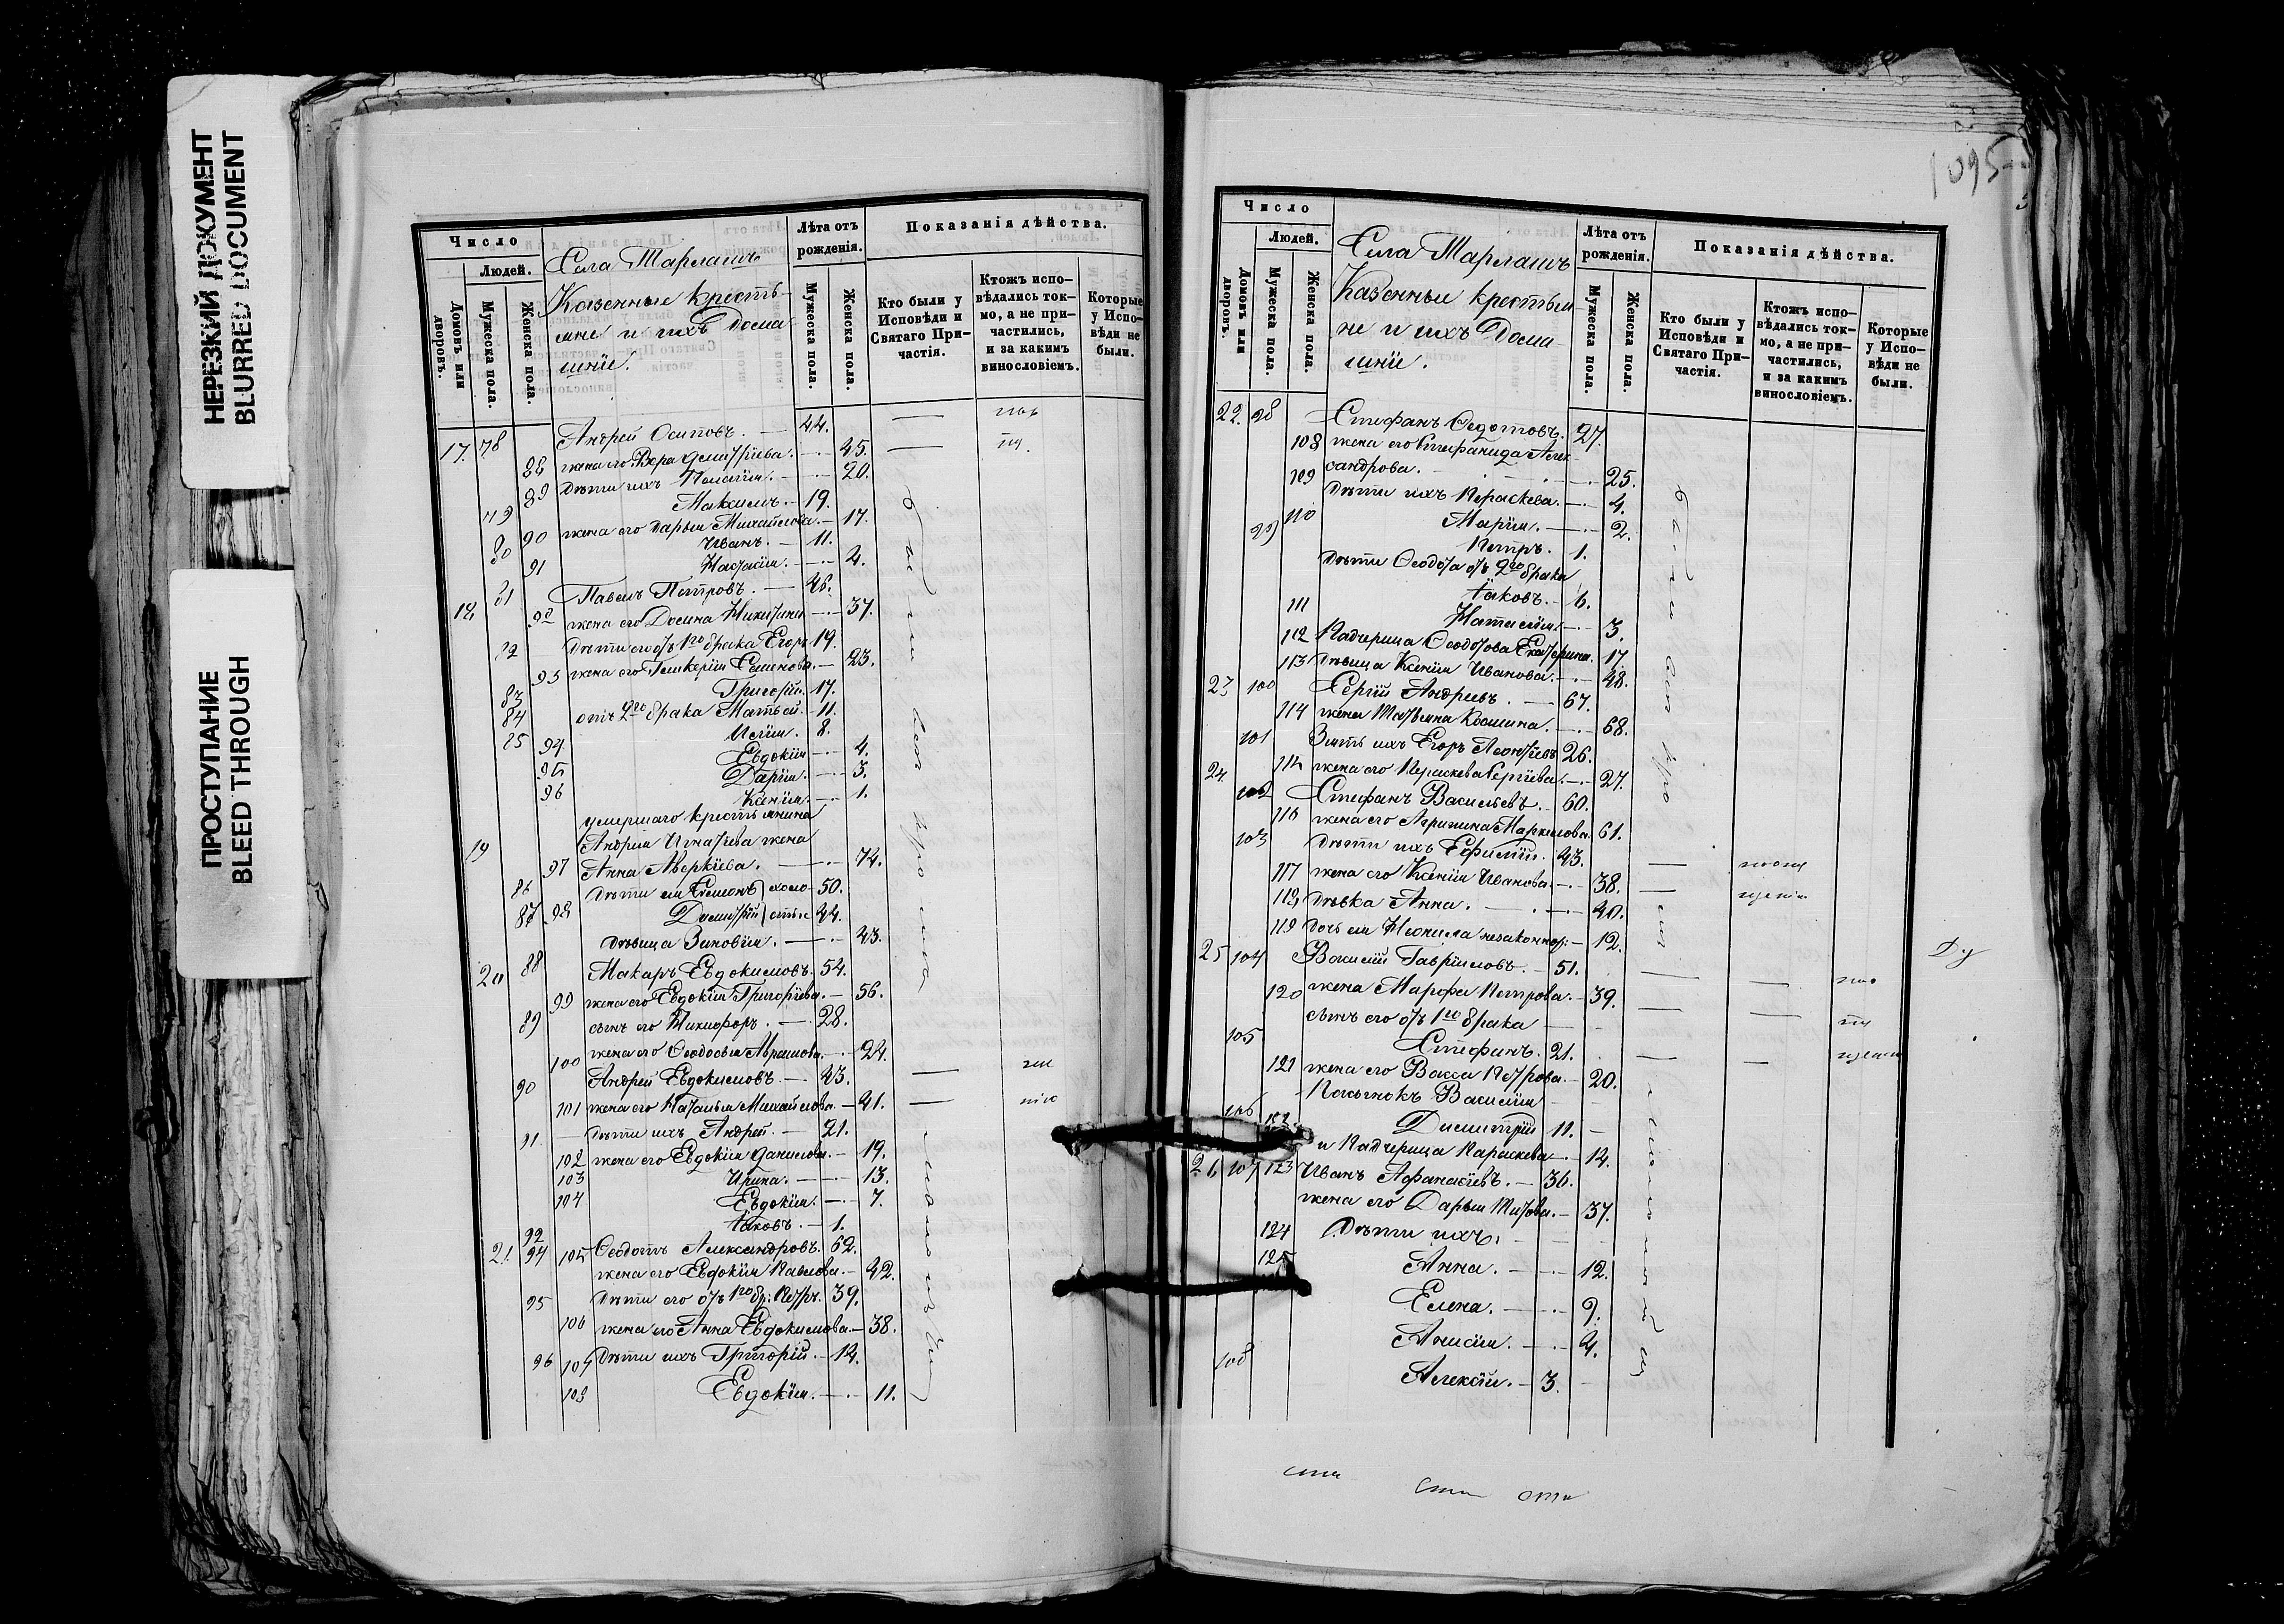 НЕРЕЗКИЙ ДОКУМЕНТ
BLURRED DOCUMENT
ПРОСТУПАНИЕ
BLEED THROUGH
Число
Людей.
Домовъ или дворовъ.
Мужеска пола.
Женска пола.
Села Тарлашъ
Казенные кресть-
яне и ихъ Дома
шніе.
Лѣта отъ рожденія.
Мужеска пола.
Женска пола.
Показанія дѣйства.
Кто были у Исповѣди и Святаго При-частія.
Ктожъ испо-вѣдались ток-мо, а не при-частились, и за какимъ винословіемъ.
Которые у Испо-вѣди не были.
17. 78 Андрей Осиповъ. 44.
88 жена его Вера Дмитріева. 45.
89 дѣти ихъ 20.
79 Максимъ. 19.
90 жена его Дарья Михайлова. 17.
80 Иванъ. 11.
91 Настасія. 4.
81 Павелъ Петровъ. 46.
18 92 жена его Домна Никитина 37.
82 Дѣти его отъ 1го брака Егоръ 19.
93 жена его Гликерія Семенова. 23.
83 Григорій. 17.
84 отъ 2го брака Матвей. 11.
85 Илія. 8.
94 Евдокія 4.
95 Дарія. 3.
96 Ксенія. 1.
умершаго крестьянина
19 Андрея Игнатьева жена
97 Анна Аверкіева. 74.
86 Дѣти ея Семенъ холо- 50.
87 98 Димитрій стые 44.
дѣвица Зиновія. 43.
20 88 Макаръ Евдокимовъ. 54.
99 жена его Евдокія Григорьева. 56.
89 сынъ его Никифоръ. 28.
100 жена его Ѳеодосья Абрамова. 24.
90 Андрей Евдокимовъ. 43.
101 жена его Наталья Михайлова. 41.
91 Дѣти ихъ Андрей. 21.
102 жена его Евдокія Данилова. 19.
103 Ирина. 13.
104 Евдокія. 7.
92 Яковъ. 1.
21 94 105 Ѳеодотъ Александровъ. 62.
жена его Евдокія Павлова. 42.
95 Дѣти его отъ 1го бр. Петръ. 39.
106 жена его Анна Евдокимова. 38.
96 107 Дѣти ихъ Григорій. 14.
108 Евдокія. 11.
1095
Число
Людей.
Домовъ или дворовъ.
Мужеска пола.
Женска пола.
Села Тарлашъ
Казенные крестья
не и ихъ Дома-
шніе.
Лѣта отъ рожденія.
Мужеска пола.
Женска пола.
Показанія дѣйства.
Кто были у Исповѣди и Святаго При-частія.
Ктожъ испо-вѣдались ток-мо, а не при-частились, и за какимъ винословіемъ.
Которые у Испо-вѣди не были.
22. 98 Стефанъ Ѳедотовъ. 27.
108 жена его Стефанида Алек
109 сандрова. 25.
дѣти ихъ Параскева. 4.
110 Марія. 2.
99 Петръ. 1.
дѣти Ѳеодота отъ 2го брака
Яковъ. 6.
111 Наталія. 3.
112 Падчерица Ѳеодотова Екатерина. 17.
113 дѣвица Ксенія Иванова. 48.
23 100 Сергій Андреевъ. 67.
114 жена Татьяна Козмина. 68.
101 Зять ихъ Егоръ Леонтьевъ 26.
114 жена его Параскева Сергіева. 27.
24 102 Стефанъ Васильевъ. 60.
116 жена его Агрипина Маркелова. 61.
103 дѣти ихъ Ефимій. 43.
117 жена его Ксенія Иванова. 38.
118 дѣвка Анна. 40.
119 дочь ея Неонила незаконнор: 12.
25 104 Василій Гавриловъ. 51.
120 жена Марфа Петрова. 39.
сынъ его отъ 1го брака
105 Стефанъ. 21.
121 жена его Васса Петрова. 20.
Пасынокъ Василія
106 122 Димитрій 11.
и Падчерица Параскева 14.
26 107 123 Иванъ Афанасіевъ. 36.
жена его Дарья Титова. 37.
124 Дѣти ихъ:
125 Анна. 12.
Елена. 9.
Анисія. 4.
108 Алексій. 3.